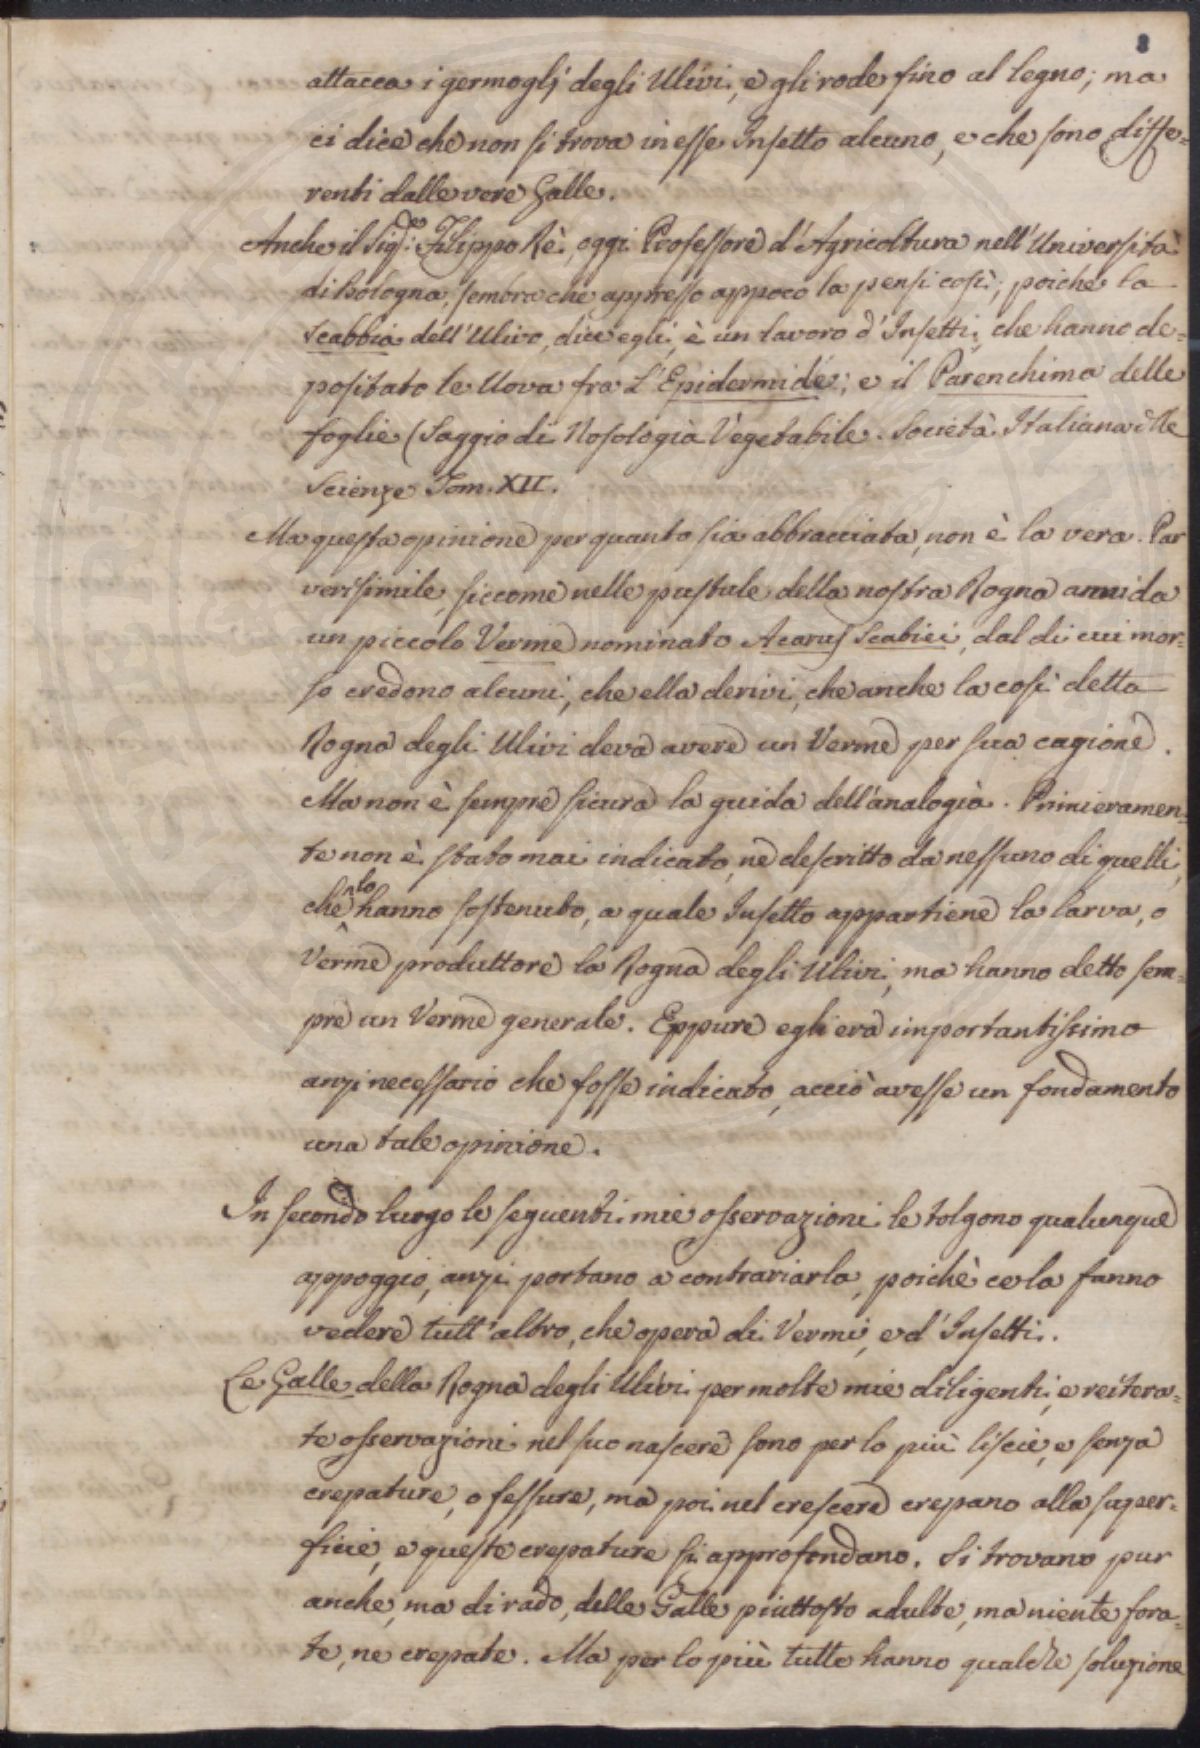 8
attacca i germoglj degli Ulivi, e gli rode fino al legno; ma
ci dice che non si trova in esse Insetto alcuno, e che sono diffe=
renti dalle vere Galle.
Anche il Sig.re Filippo Rè, oggi Professore d'Agricoltura nell'Università
di Bologna, sembra che appresso appoco la pensi così; poichè la
Scabbia dell'Ulivo, dice egli, è un lavoro d'Insetti, che hanno de=
positato le Uova fra L'Epidermide; e il Parenchima delle
foglie (Saggio di Nosologia Vegetabile. Società Italiana delle
Scienze Tom. XII.
Ma questa opinione per quanto sia abbracciata, non è la vera. Par
verisimile, siccome nelle pustule della nostra Rogna annida
un piccolo Verme nominato Acarus Scabiei, dal di cui mor=
so credono alcuni, che ella derivi, che anche la così detta
Rogna degli Ulivi deva avere un Verme per sua cagione.
Ma non è sempre sicura la guida dell'analogia. Primieramen=
te non è stato mai indicato, nè descritto da nessuno di quelli,
che lo hanno sostenuto, a quale Insetto appartiene la larva, o
Verme produttore la Rogna degli Ulivi, ma hanno detto sem=
pre un Verme generale. Eppure egli era importantissimo
anzi necessario che fosse indicato, acciò avesse un fondamento
una tale opinione.
In secondo luogo le seguenti mie osservazioni le tolgono qualunque
appoggio, anzi portano a contrariarla, poichè ce la fanno
vedere tutt'altro, che opera di Vermi, e d'Insetti.
Le Galle della Rogna degli Ulivi per molte mie diligenti, e reitera=
te osservazioni nel suo nascere sono per lo più liscie, e senza
crepature, o fessure, ma poi nel crescere crepano alla super=
ficie, e queste crepature si approfondano. Si trovano pur
anche, ma di rado, delle Galle piuttosto adulte, ma niente fora=
te, ne crepate. Ma per lo più tutte hanno qualche soluzione